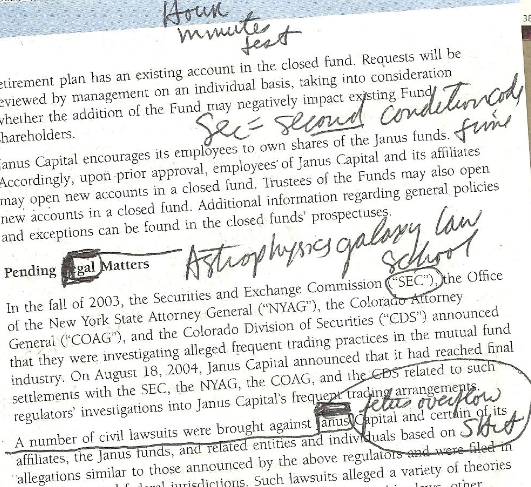 Hour
minutes
test
etirement plan has an existing account in the closed fund. Requests will be
eviewed by management on an individual basis, taking into consideration
whether the addition of the Fund may negatively impact existing Fund
shareholders.
Sec = second condition code
time
Janus Capital encourages its employees to own shares of the Janus funds.
Accordingly, upon prior approval, employees of Janus Capital and its affiliates
may open new accounts in a closed fund. Trustees of the Funds may also open
new accounts in a closed fund. Additional information regarding general policies
and exceptions can be found in the closed funds' prospectuses.
Astrophysics galaxy law
school
Pending Legal Matters
In the fall of 2003, the Securities and Exchange Commission ("SEC"), the Office
of the New York State Attorney General ("NYAG"), the Colorado Attorney
General ("COAG"), and the Colorado Division of Securities ("CDS") announced
that they were investigating alleged frequent trading practices in the mutual fund
industry. On August 18, 2004, Janus Capital announced that it had reached final
settlements with the SEC, the NYAG, the COAG, and the CDS related to such
regulators' investigations into Janus Capital's frequent trading arrangements.
fetus overflow
A number of civil lawsuits were brought against Janus Capital and certain of its
affiliates, the Janus funds, and related entities and individuals based on
allegations similar to those announced by the above regulators and were filed in
federal jurisdictions. Such lawsuits alleged a variety of theories